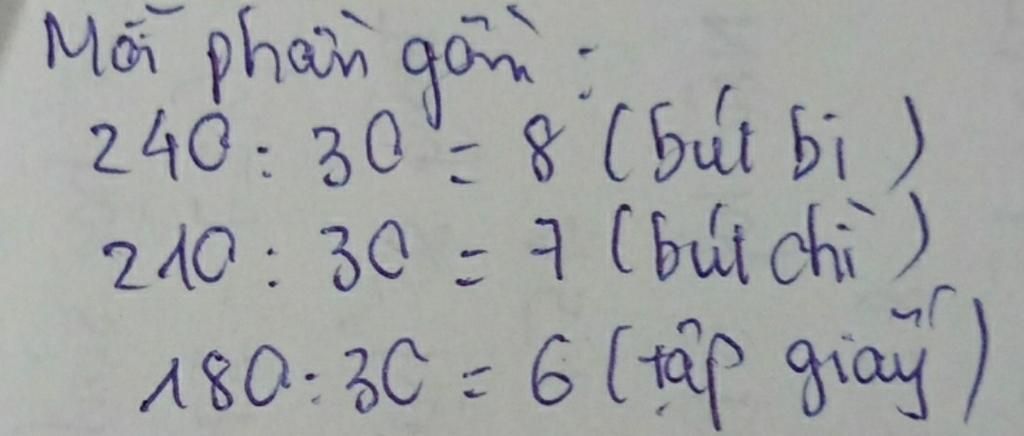 Mỗi phần gồm :
240 : 30 = 8 (bút bi)
210 : 30 = 7 (bút chì)
180 : 30 = 6 (tập giấy)